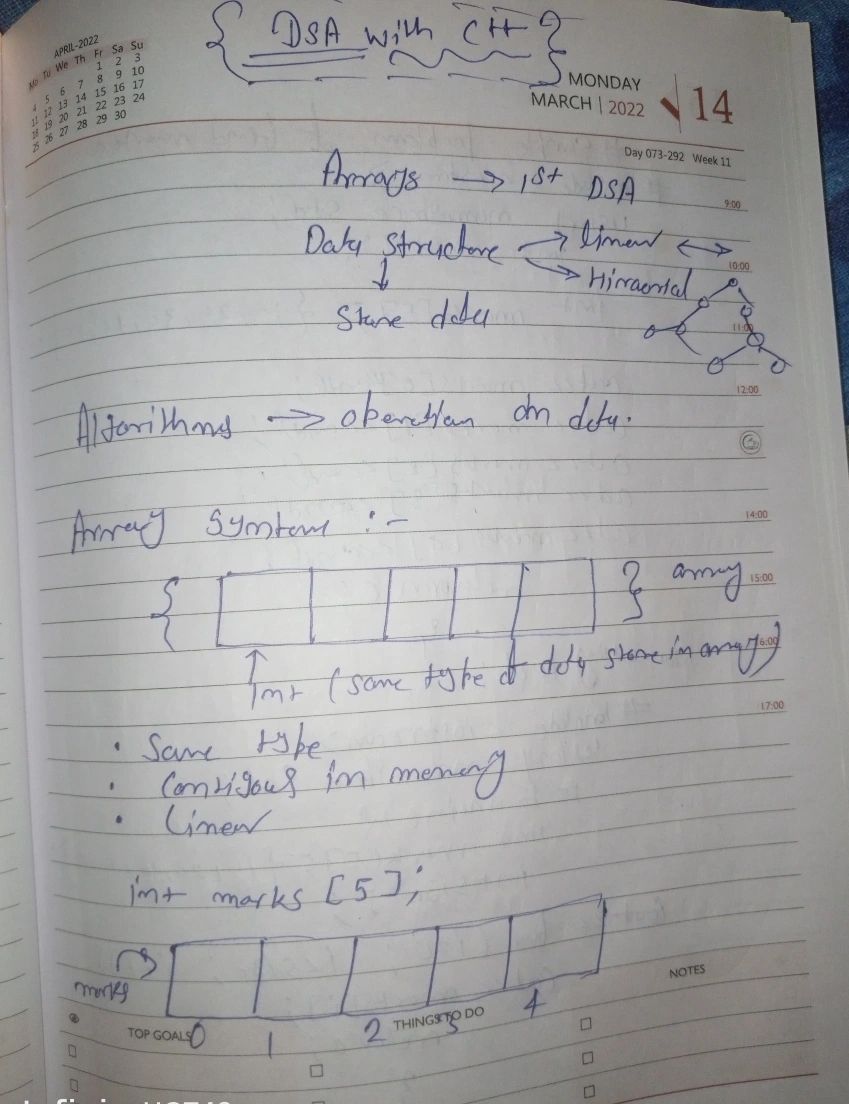 { DSA with C++ }
APRIL-2022
Mo Tu We Th Fr Sa Su
1 2 3
4 5 6 7 8 9 10
11 12 13 14 15 16 17
18 19 20 21 22 23 24
25 26 27 28 29 30
MONDAY
MARCH | 2022 14
Day 073-292 Week 11
Arrays → 1st DSA
9:00
Data Structure → linear ↔
10:00
→ Hiraorial
↓
Store data
11:00
12:00
Algorithms → operation on data.
14:00
Array Syntax :-
{ } array
15:00
16:00
↑
Int (same type of data store in array)
17:00
• Same type
• Contigous in memory
• Linear
int marks [5];
marks
NOTES
TOP GOALS
THINGS TO DO
0 1 2 3 4